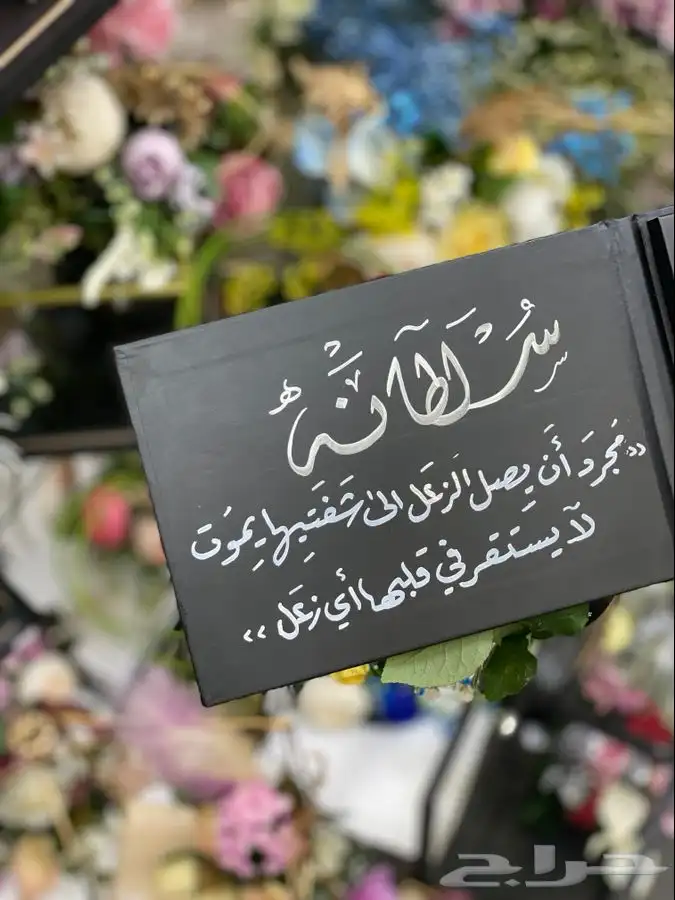 سُلطانَه
«مُجردَ أَن يصل الزعَل الىٰ شَفَتِيها يموُت
لآ يَستَقر في قلبها أي زعَل»
حراج